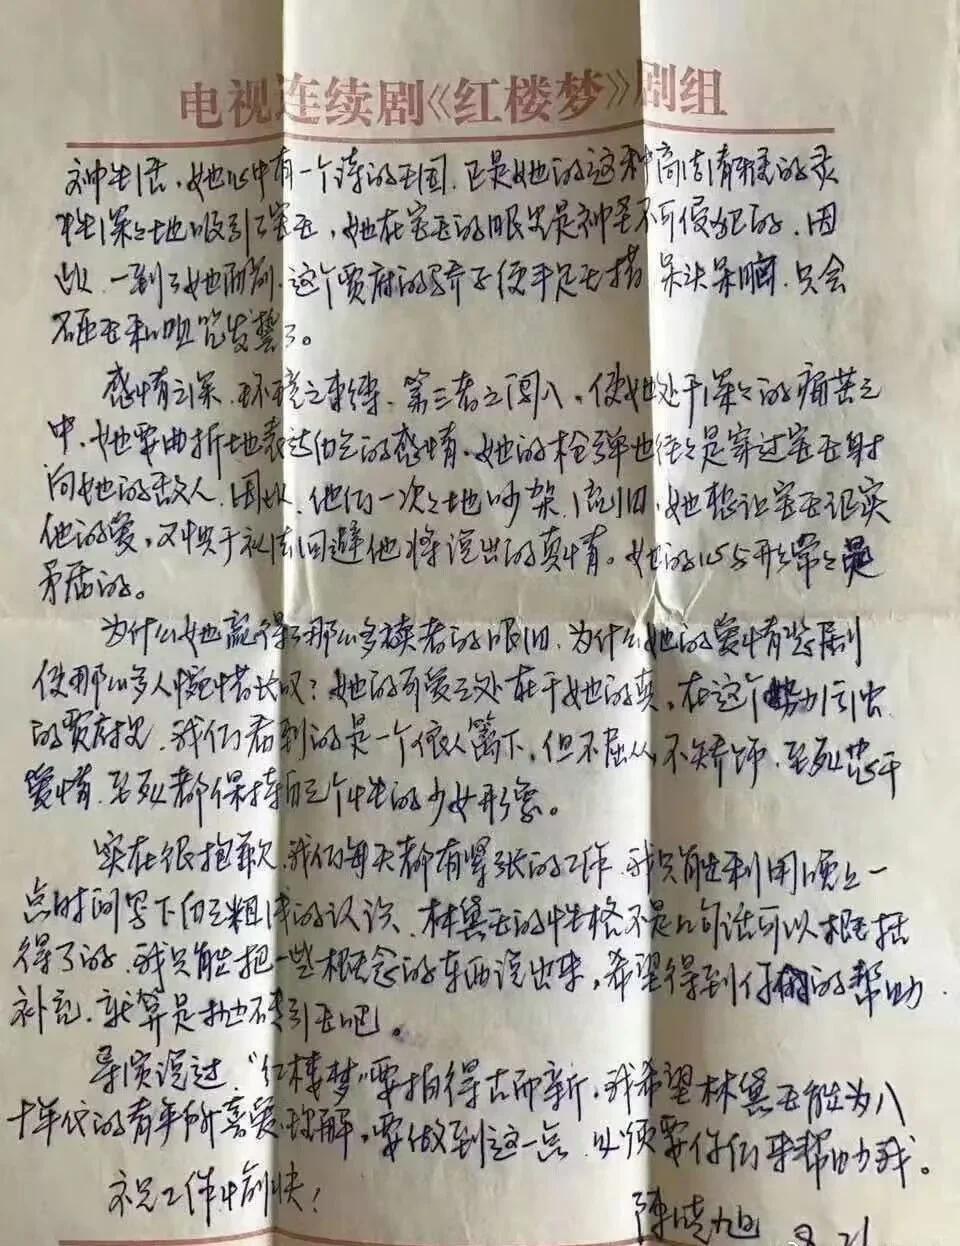 电视连续剧《红楼梦》剧组
神生活，她心中有一个诗的王国，正是她的这种高洁清雅的灵
性深深地吸引了宝玉，她在宝玉的眼里是神圣不可侵犯的，因
此，一到了她面前，这个贾府的骄子便手足无措、呆头呆脑，只会
和咀咒发誓了。
感情之深，环境之束缚，第三者之闯入，使她处于深深的痛苦之
中，她要曲折地表达自己的感情，她的枪弹也往往是穿过宝玉射
向她的敌人，因此，他们一次次地吵架、流泪，她想让宝玉证实
他的爱，又惧于礼法回避他将说出的真情。她的心与形常常是
矛盾的。
为什么她赢得了那么多读者的眼泪，为什么她的爱情悲剧
使那么多人惋惜长叹？她的可爱之处在于她的真，在这个势力
的贾府里，我们看到的是一个依人篱下，但不屈从、不矫饰，至死忠于
爱情，至死都保持自己个性的少女形象。
实在很抱歉，我们每天都有紧张的工作，我只能利用晚上一
点时间写下自己粗浅的认识，林黛玉的性格不是几句话可以概括
得了的，我只能把一些概念的东西说出来，希望得到你们的帮助、
补充，就算是抛砖引玉吧。
导演说过，“红楼梦”要拍得古而新，我希望林黛玉能为八
十年代的青年所喜爱、理解，要做到这一点，必须要你们来帮助我。
祝工作愉快！
陈晓旭 8.21